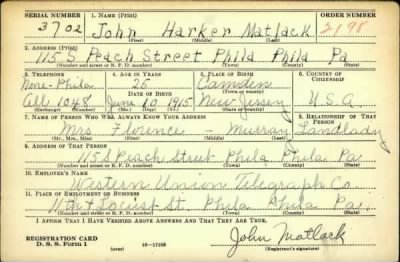 SERIAL NUMBER 1. NAME (Print) ORDER NUMBER
3702 John Harker Matlack 2198
(First) (Middle) (Last)
2. ADDRESS (Print)
115 S Peach Street Phila Phila Pa
(Number and street or R. F. D. number) (Town) (County) (State)
3. TELEPHONE 4. AGE IN YEARS 5. PLACE OF BIRTH 6. COUNTRY OF CITIZENSHIP
None-Phila 25 Camden
DATE OF BIRTH (Town or county)
1048 June 10 1915 New Jersey U.S.A.
(Exchange) (Number) (Mo.) (Day) (Yr.) (State or country)
7. NAME OF PERSON WHO WILL ALWAYS KNOW YOUR ADDRESS 8. RELATIONSHIP OF THAT PERSON
Mrs. Florence - Murray Landlady
(Mr., Mrs., Miss) (First) (Middle) (Last)
9. ADDRESS OF THAT PERSON
115 S Peach Street Phila Phila Pa.
(Number and street or R. F. D. number) (Town) (County) (State)
10. EMPLOYER'S NAME
Western Union Telegraph Co.
11. PLACE OF EMPLOYMENT OR BUSINESS
11th + Locust St. Phila Phila Pa.
(Number and street or R. F. D. number) (Town) (County) (State)
I AFFIRM THAT I HAVE VERIFIED ABOVE ANSWERS AND THAT THEY ARE TRUE.
REGISTRATION CARD
D. S. S. Form 1 (over) 16—17105
John Matlack
(Registrant's signature)